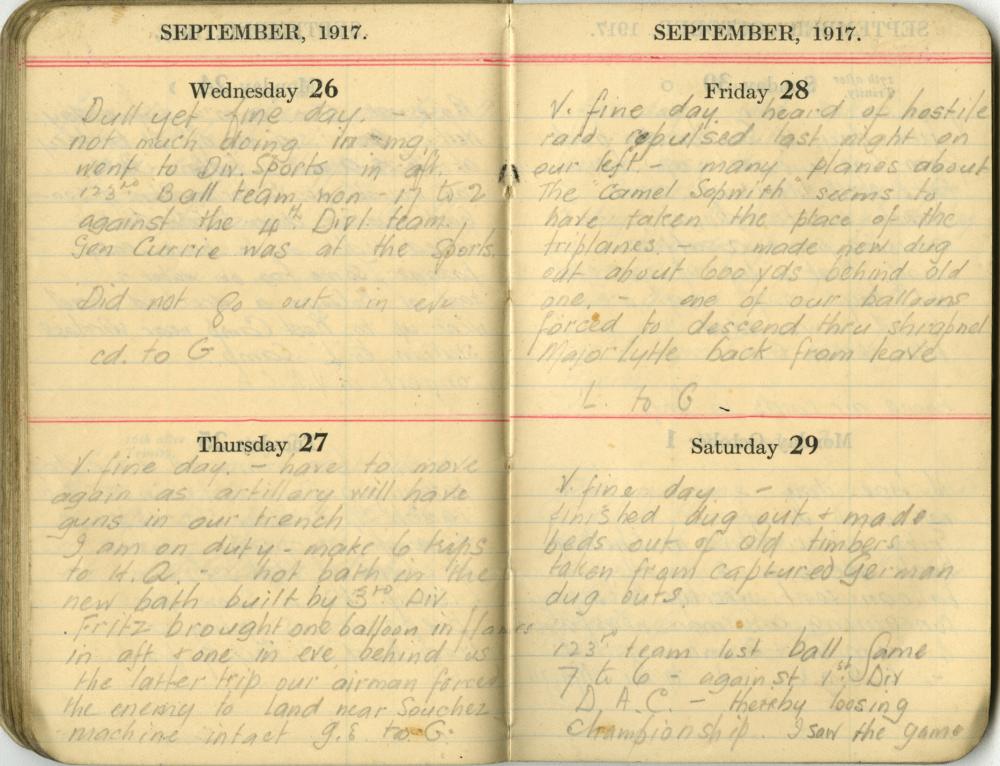 SEPTEMBER, 1917.
Wednesday 26
Dull yet fine day. -
not much doing in mg.
went to Div. Sports in aft.
123rd Ball team won - 17 to 2
against the 4th Divl. team.
Gen Currie was at the sports.
Did not go out in eve
cd. to G
Thursday 27
V. fine day. - have to move
again as artillary will have
guns in our trench
I am on duty - make 6 trips
to H.Q. - hot bath in the
new bath built by 3rd Div
Fritz brought one balloon in flames
in aft. + one in eve behind us
the latter trip our airman forced
the enemy to land near Souchez
machine intact g.c. to G.
SEPTEMBER, 1917.
Friday 28
V. fine day. heard of hostile
raid repulsed last night on
our left. - many planes about
The "Camel Sopwith" seems to
have taken the place of the
triplanes. - made new dug
out about 600 yds behind old
one. - one of our balloons
forced to descend thru shrapnel
Major Lytle back from leave
L. to G -
Saturday 29
V. fine day. -
finished dug out + made
beds out of old timbers
taken from captured German
dug outs.
123rd team lost ball game
7 to 6 - against 1st Div
D.A.C. - thereby loosing
championship. I saw the game